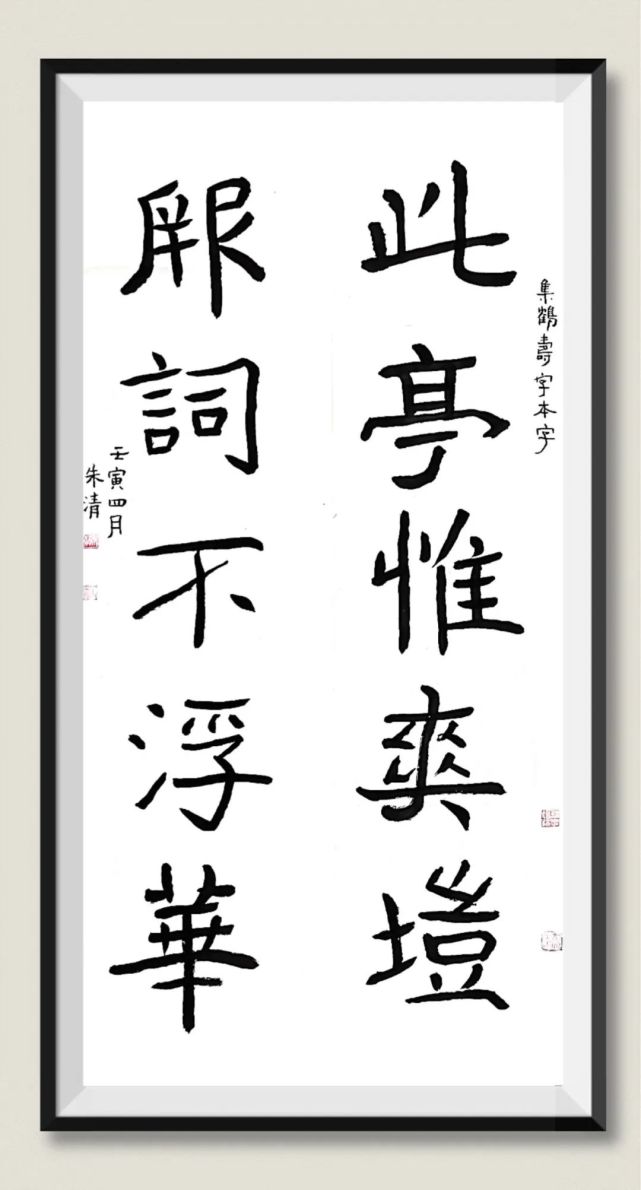 集鶴壽字本字
此亭惟爽塏
厥詞不浮華
壬寅四月
朱清